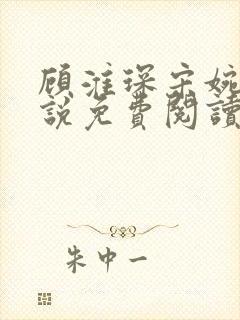 顾淮琛宋婉
說免費閱讀
朱中一